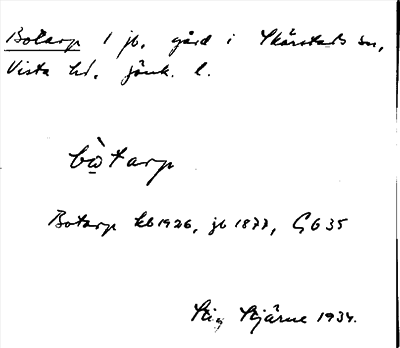 Botarp 1 jb. gård i Skärstads sn,
Vista hd. jönk. l.
bò̱tarp
Botarp kb 1926, jb 1877, G635
Stig Stjärne 1934.